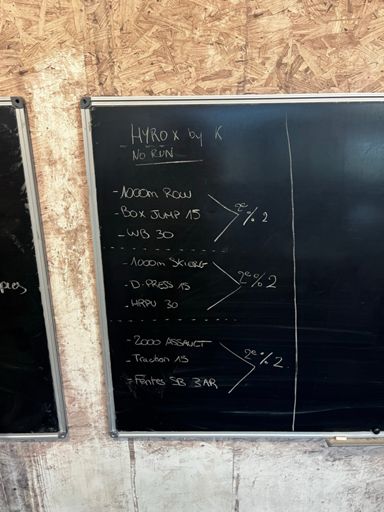 HYROX by K
NO RUN
- 1000m ROW
- BOX JUMP 15
- WB 30
2e % 2
- 1000m SKIERG
- D-PRESS 15
- HRPU 30
2e % 2
- 2000 ASSAULT
- Traction 15
- Fentes SB 3 AR
2e % 2